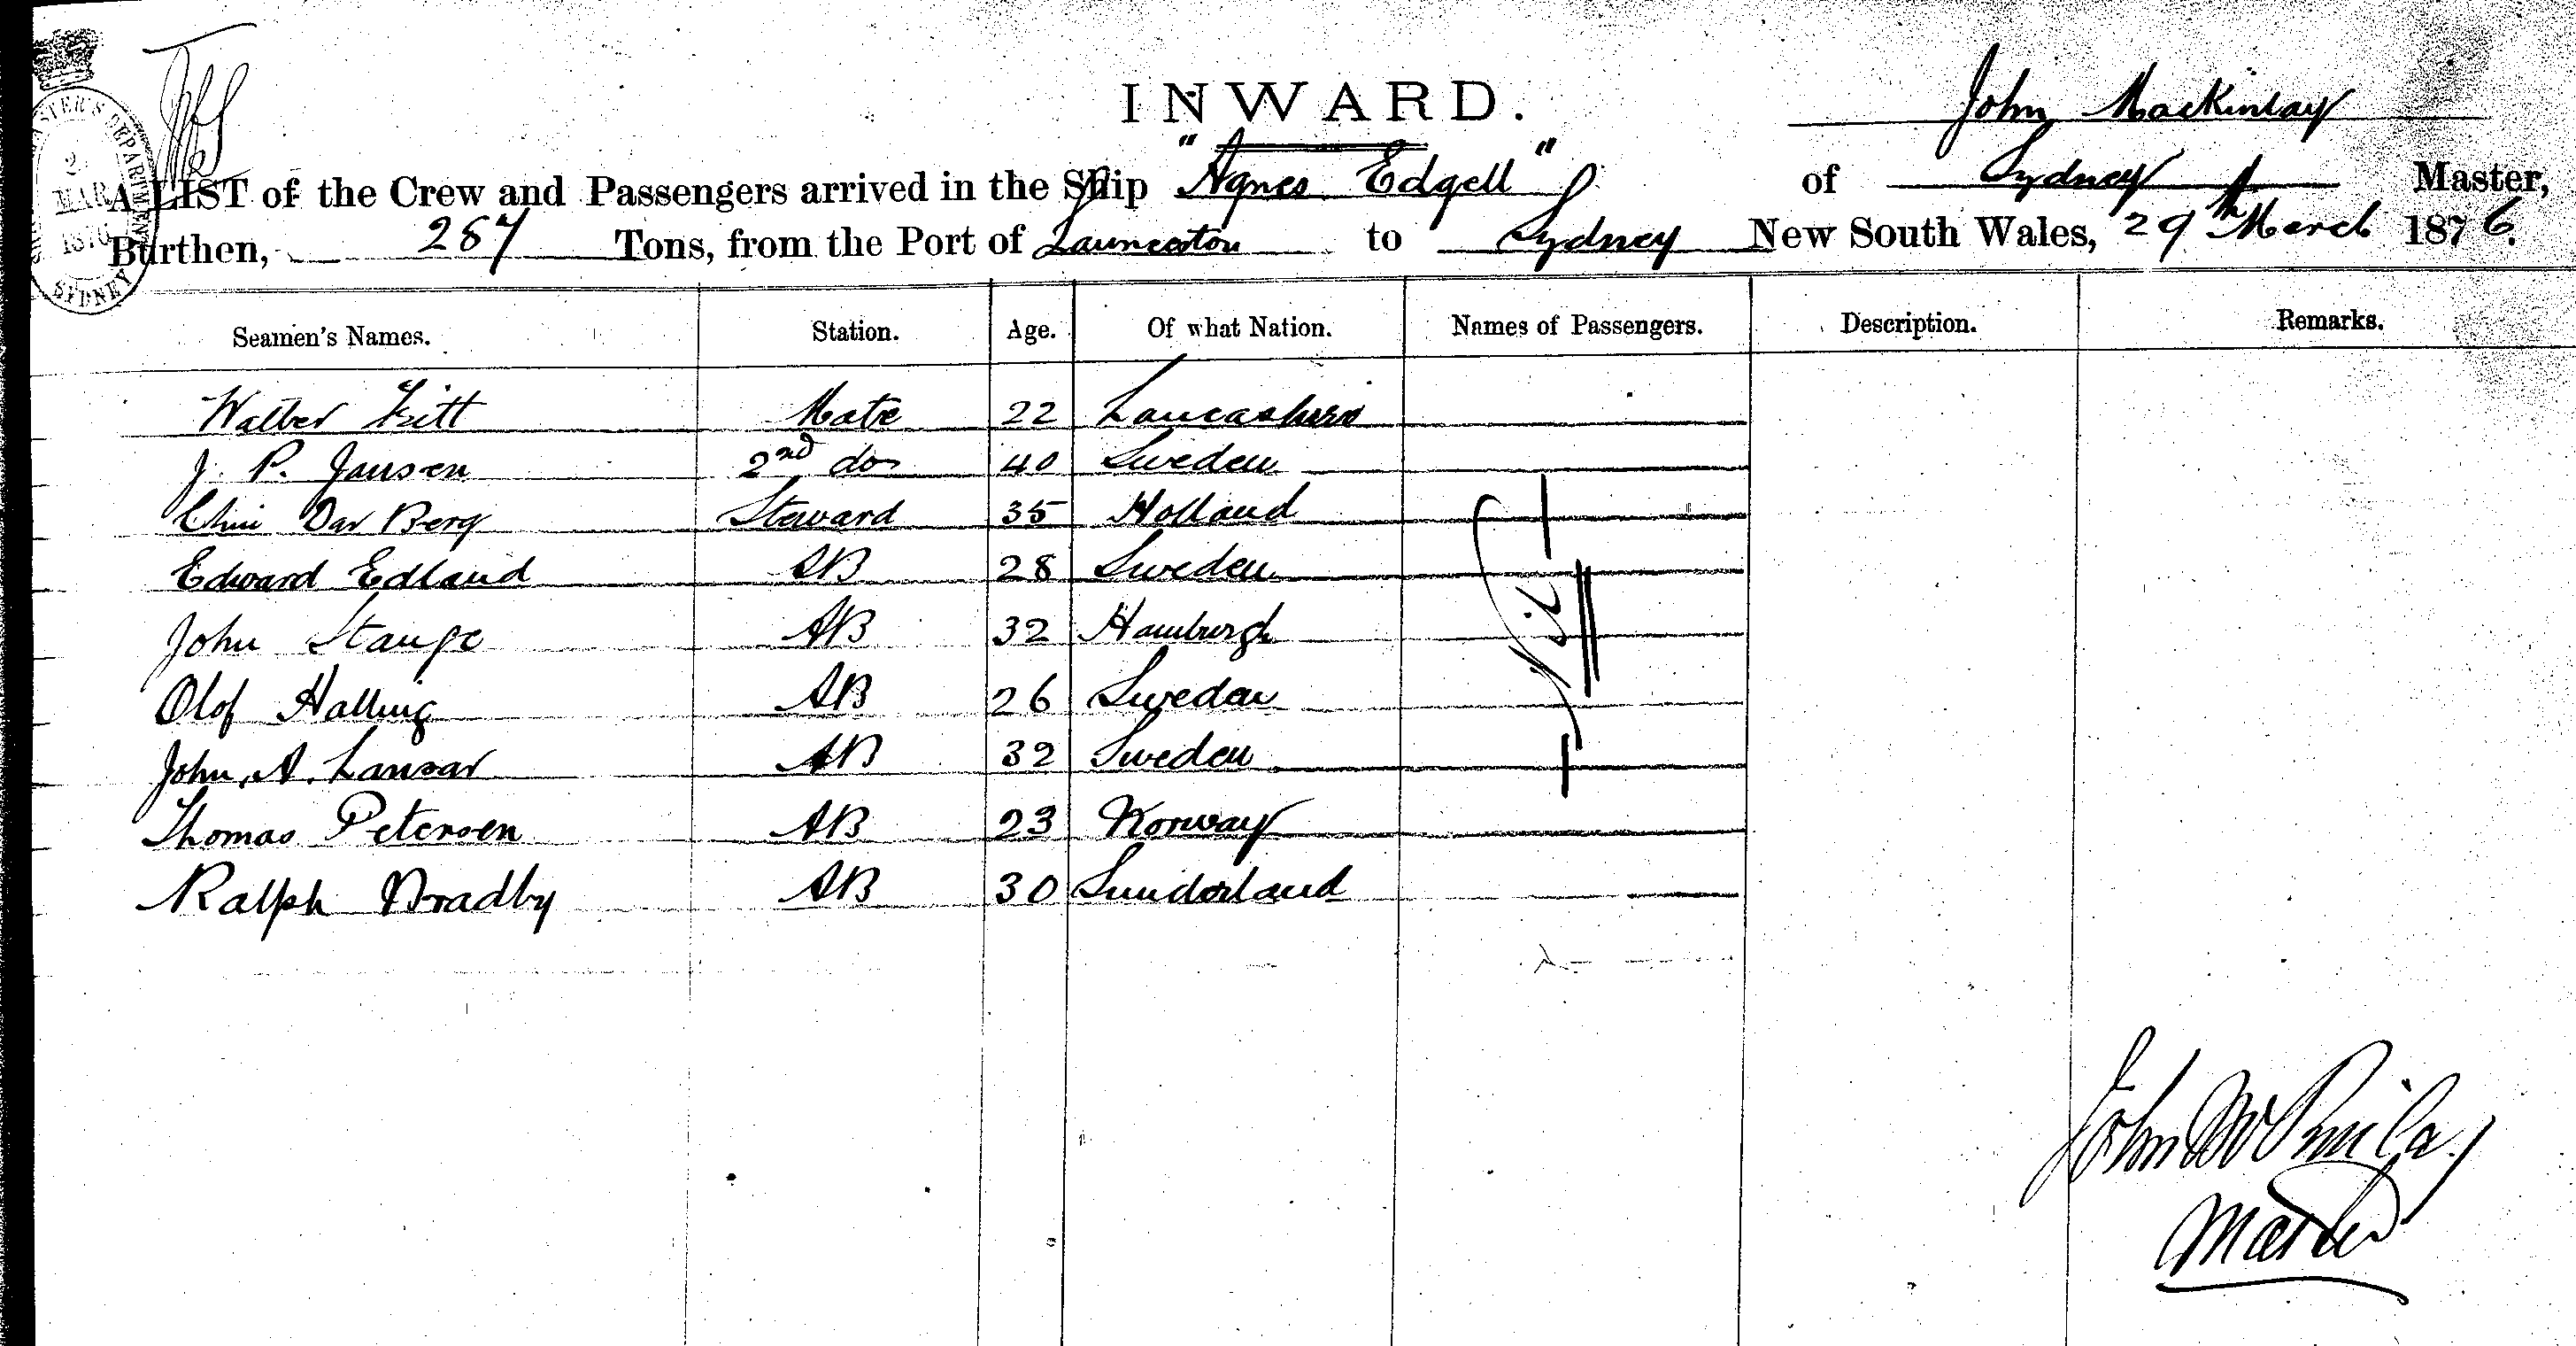 INWARD.
John Mackinlay
A LIST of the Crew and Passengers arrived in the Ship "Agnes Edgell" of Sydney Master,
Burthen, 287 Tons, from the Port of Launceston to Sydney New South Wales, 29th March 1876.
MAR
1876
SYDNEY
Seamen's Names. Station. Age. Of what Nation. Names of Passengers. Description. Remarks.
Walter Kitt Mate 22 Lancashire
J. P. Jansen 2nd do 40 Sweden
Berg Steward 35 Holland
Edward Edland AB 28 Sweden
John Stange AB 32 Hamburgh
Olof Halling AB 26 Sweden
John A. AB 32 Sweden
Thomas Petersen AB 23 Norway
Ralph Bradby AB 30 Sunderland
Nil
John
Master